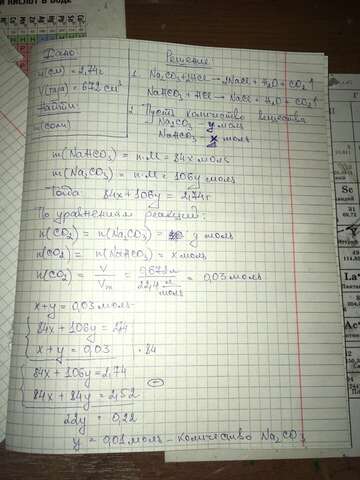 Дано:
m(см) = 2,74г
V(газа) = 672 см³
Найти
m(соли)
Решение
1. Na₂CO₃ + 2HCl → 2NaCl + H₂O + CO₂↑
NaHCO₃ + HCl → NaCl + H₂O + CO₂↑
2. Пусть количество вещества
Na₂CO₃ y моль
NaHCO₃ x моль
m(NaHCO₃) = n·M = 84x моль
m(Na₂CO₃) = n·M = 106y моль
Тогда 84x + 106y = 2,74г
По уравнениям реакции:
n(CO₂) = n(Na₂CO₃) = y моль
n(CO₂) = n(NaHCO₃) = x моль
n(CO₂) = V/Vm = 0,672л / 22,4 л/моль = 0,03 моль
x + y = 0,03 моль
84x + 106y = 2,74
x + y = 0,03 · 84
84x + 106y = 2,74
84x + 84y = 2,52
22y = 0,22
y = 0,01 моль - количество Na₂CO₃